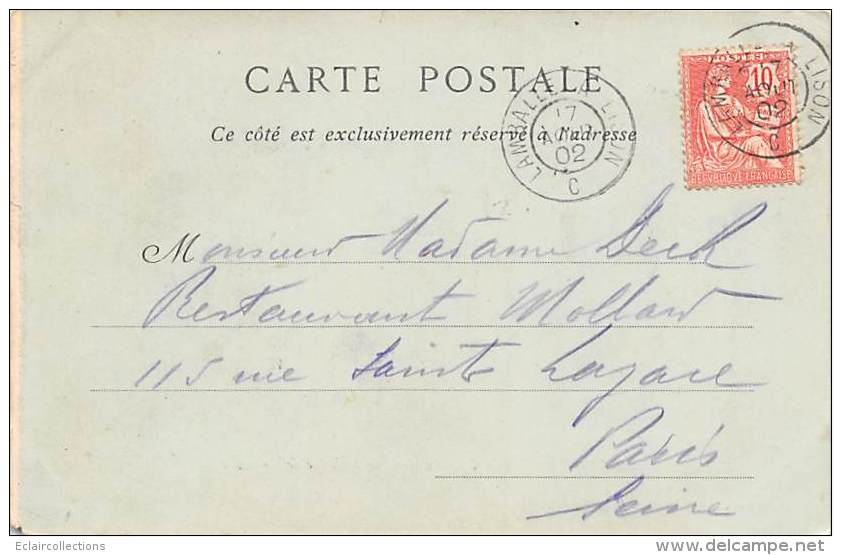 CARTE POSTALE
Ce côté est exclusivement réservé à l'adresse
LAMBALLE A LISON
17
AOUT
02
C
POSTES
10
REPUBLIQUE FRANÇAISE
A LISON
17
AOUT
02
C
Monsieur Madame Deck
Restaurant Mollard
115 rue Sainte Lazare
Paris
Seine
Eclaircollections
www.delcampe.net